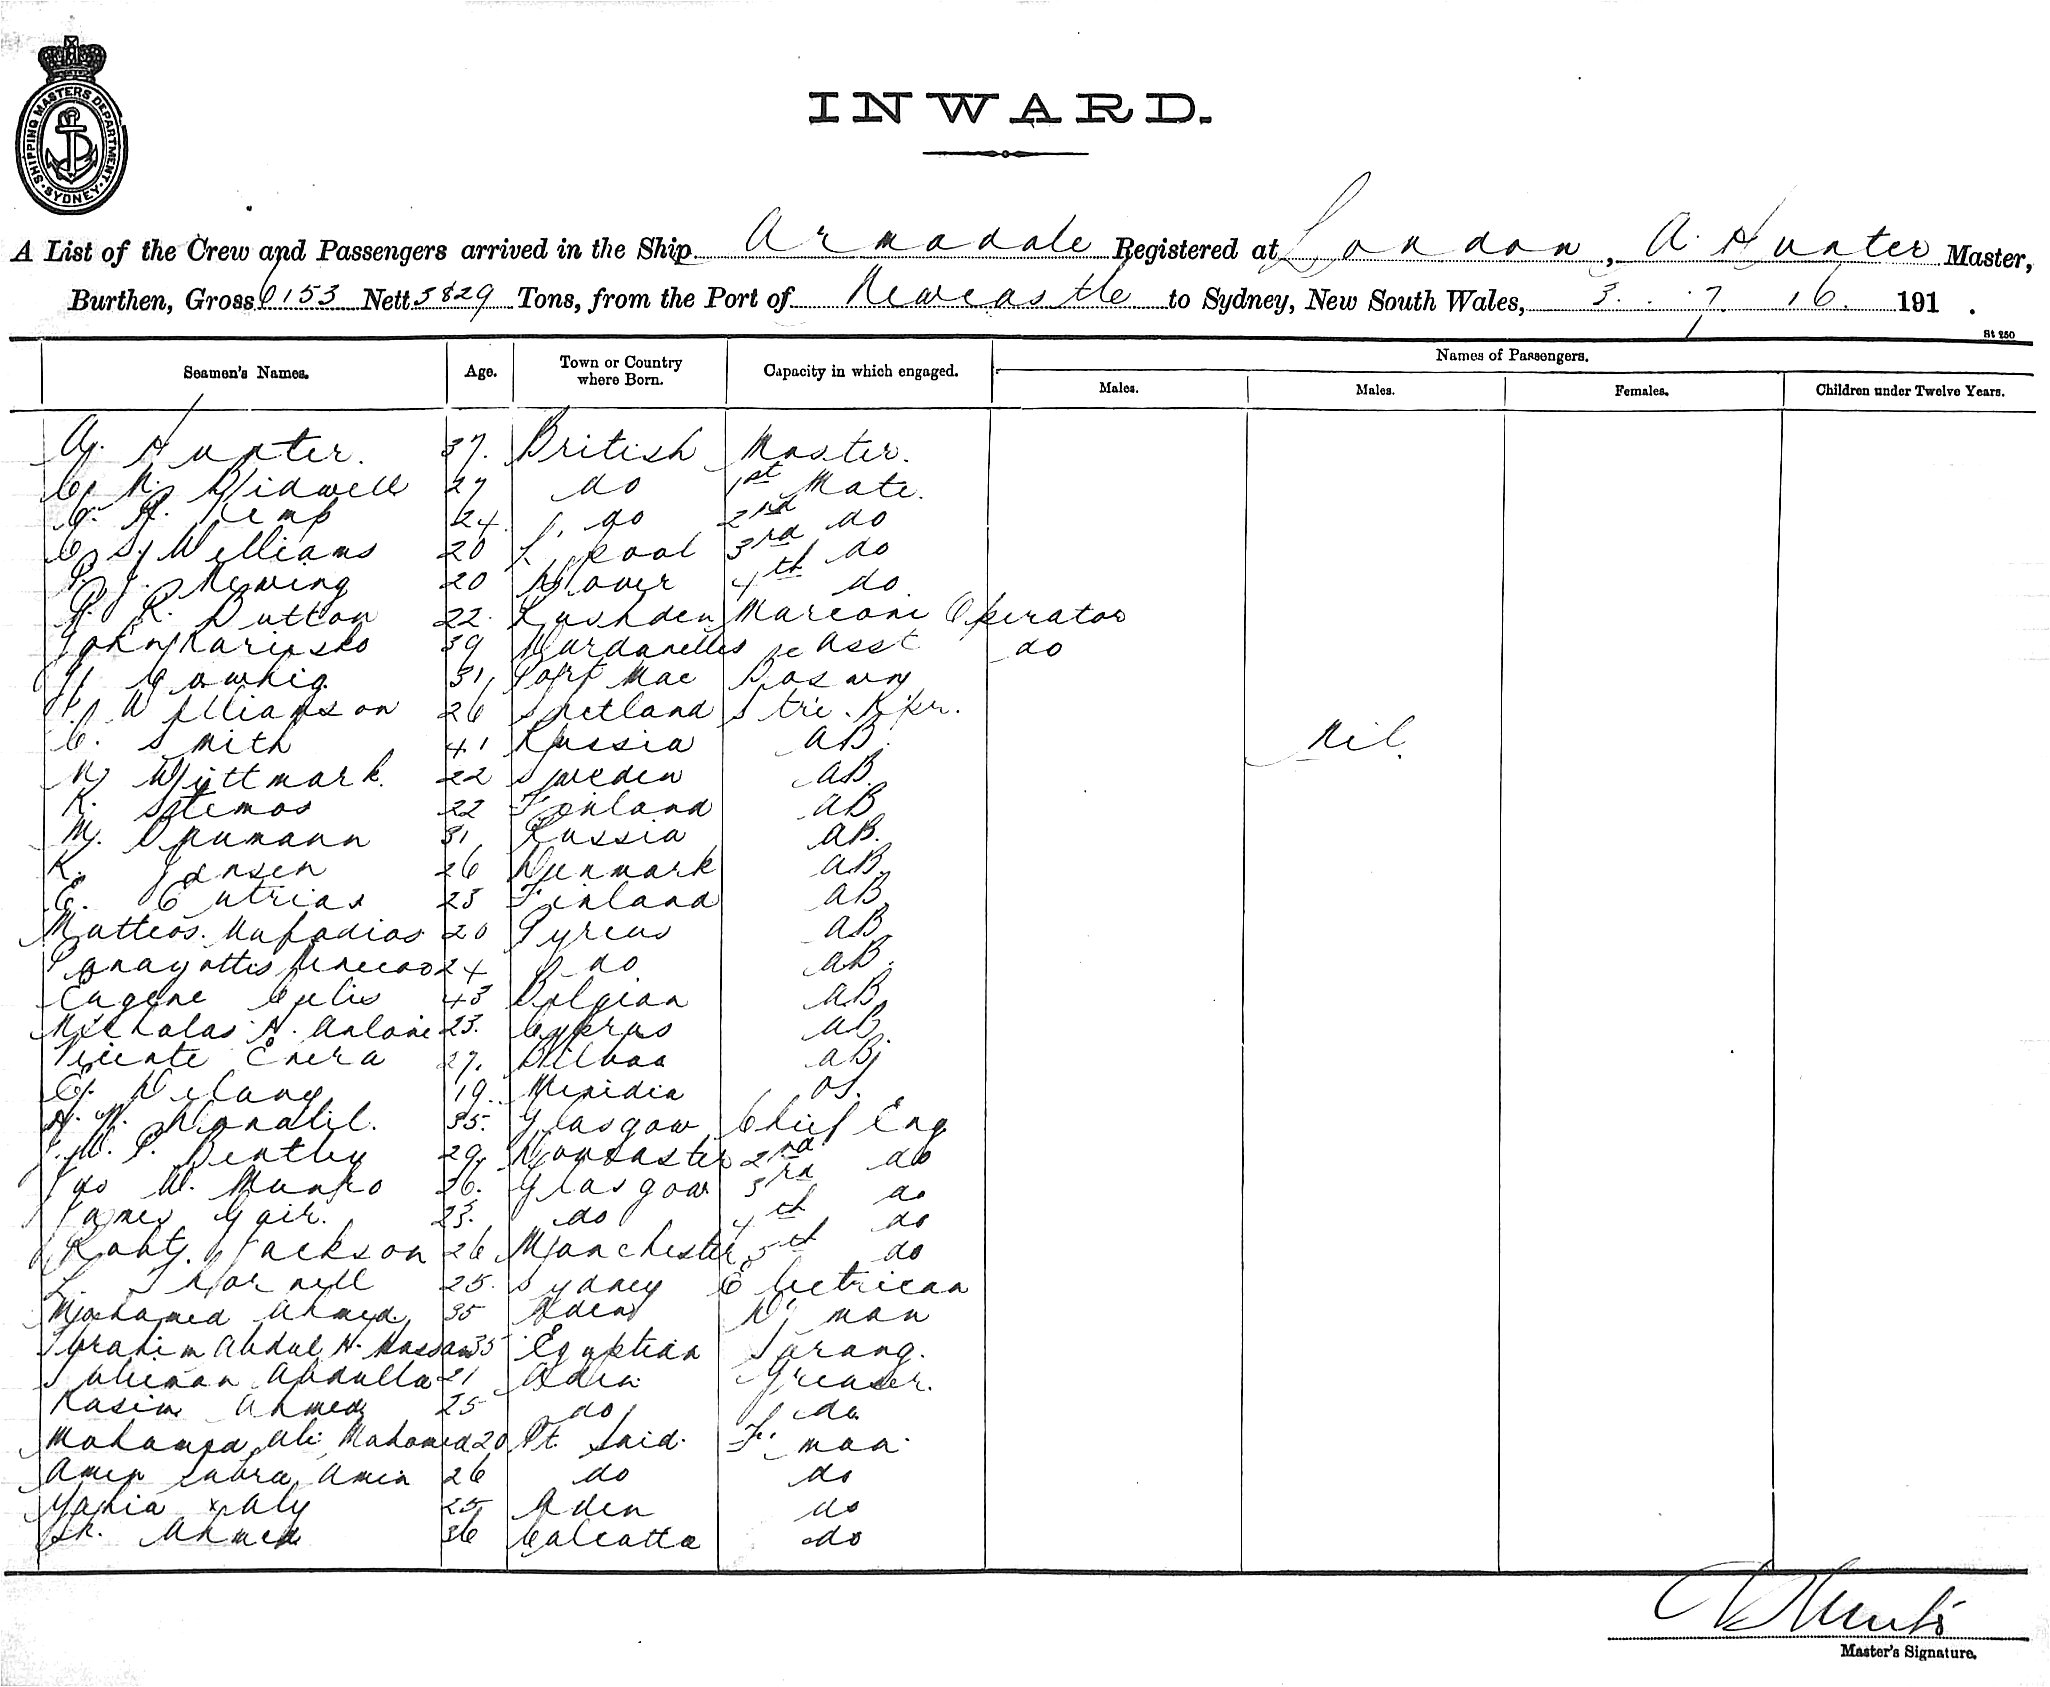 SHIPPING MASTERS DEPARTMENT · SYDNEY ·
INWARD.
A List of the Crew and Passengers arrived in the Ship Armadale Registered at London, A. Hunter Master,
Burthen, Gross 6153 Nett 3829 Tons, from the Port of Newcastle to Sydney, New South Wales, 3. 7. 16. 191 .
St 250
Seamen's Names. Age. Town or Country where Born. Capacity in which engaged. Names of Passengers.
Males. Males. Females. Children under Twelve Years.
A. Hunter. 37. British Master.
C. N. Bidwell 27 do 1st Mate.
Kemp 24. do 2nd do
Williams 20 L'pool 3rd do
P. J. Mewing 20 Dover 4th do
R. Dutton 22. Rushden Marconi Operator
John 39 Dardanelles Asst do
Cowhig 31 Port Mac Boswn
Williamson 26 Shetland Stre. Kpr.
C. Smith 41 Russia AB.
Wittmark 22 Sweden AB.
K. 22 Finland AB
M. 31 Russia AB.
K. Jansen 26 Denmark AB.
E. 23 Finland AB
Matteos 20 Pyreus AB
Panayottis 24 do AB.
Eugene 43 Belgian AB
Nicholas H. Antoni 23. Cyprus AB.
Vicente Enera 27. Bilboa AB
Delany 19. OS.
35. Glasgow Chief Eng
W. P. Bentley 29. Doncaster 2nd do
Jas W. Munro 26. Glasgow 3rd do
James Gair. 23. do 4th do
Robt. Jackson 26 Manchester 5th do
L. Thornell 25. Sydney Electrican
Mohamed Ahmed 35 Aden D'man
Ibrahim Abdul H. Hassan 35 Egyptian Sarang.
Sulieman Abdulla 21 Aden Greaser.
Kasim Ahmed 25 do do
Mohamed Ali Mahomed 20 Pt. Said. F'man
Amin Amin 26 do do
Yahia x Aly 25 Aden do
Sk. Ahmed 36 Calcutta do
Nil.
A Hunter
Master's Signature.